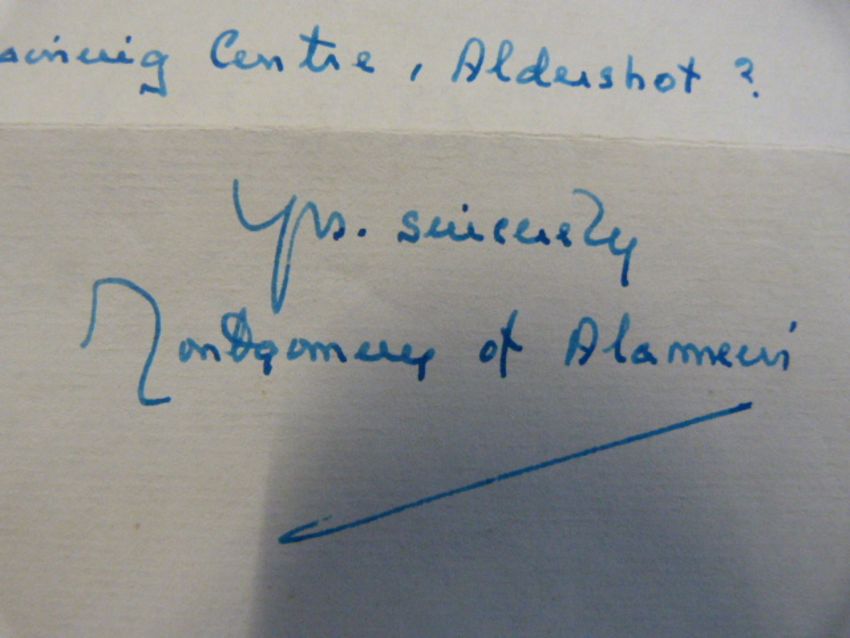 aining Centre, Aldershot ?
Yrs. sincerely
Montgomery of Alamein